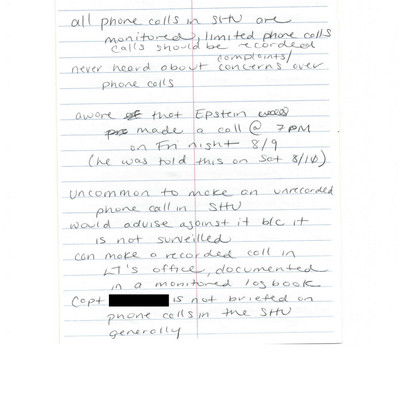 all phone calls in SHU are
monitored, limited phone calls
calls should be recorded
complaints/
never heard about concerns over
phone calls
aware that Epstein
made a call @ 7PM
on Fri night 8/9
(he was told this on Sat 8/10).
uncommon to make an unrecorded
phone call in SHU
would advise against it b/c it
is not surveilled
can make a recorded call in
LT's office, documented
in a monitored logbook
Capt is not briefed on
phone calls in the SHU
generally